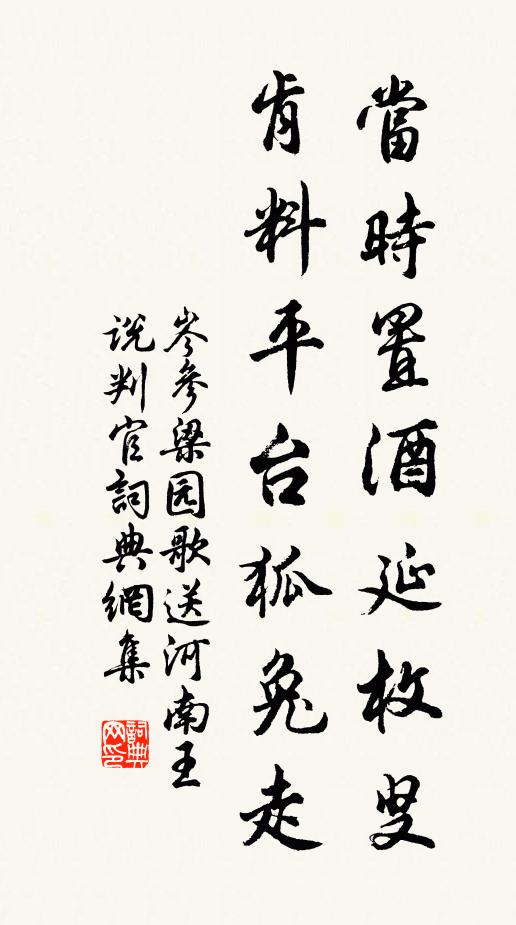 當時置酒延枚叟
肯料平台狐兔走
岑參梁园歌送河南王
说判官詞典網集
詞典
网印